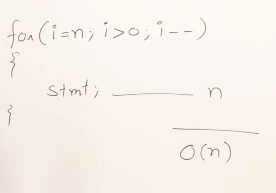 for(i=n; i>0; i--)
{
stmt; ______ n
}
O(n)